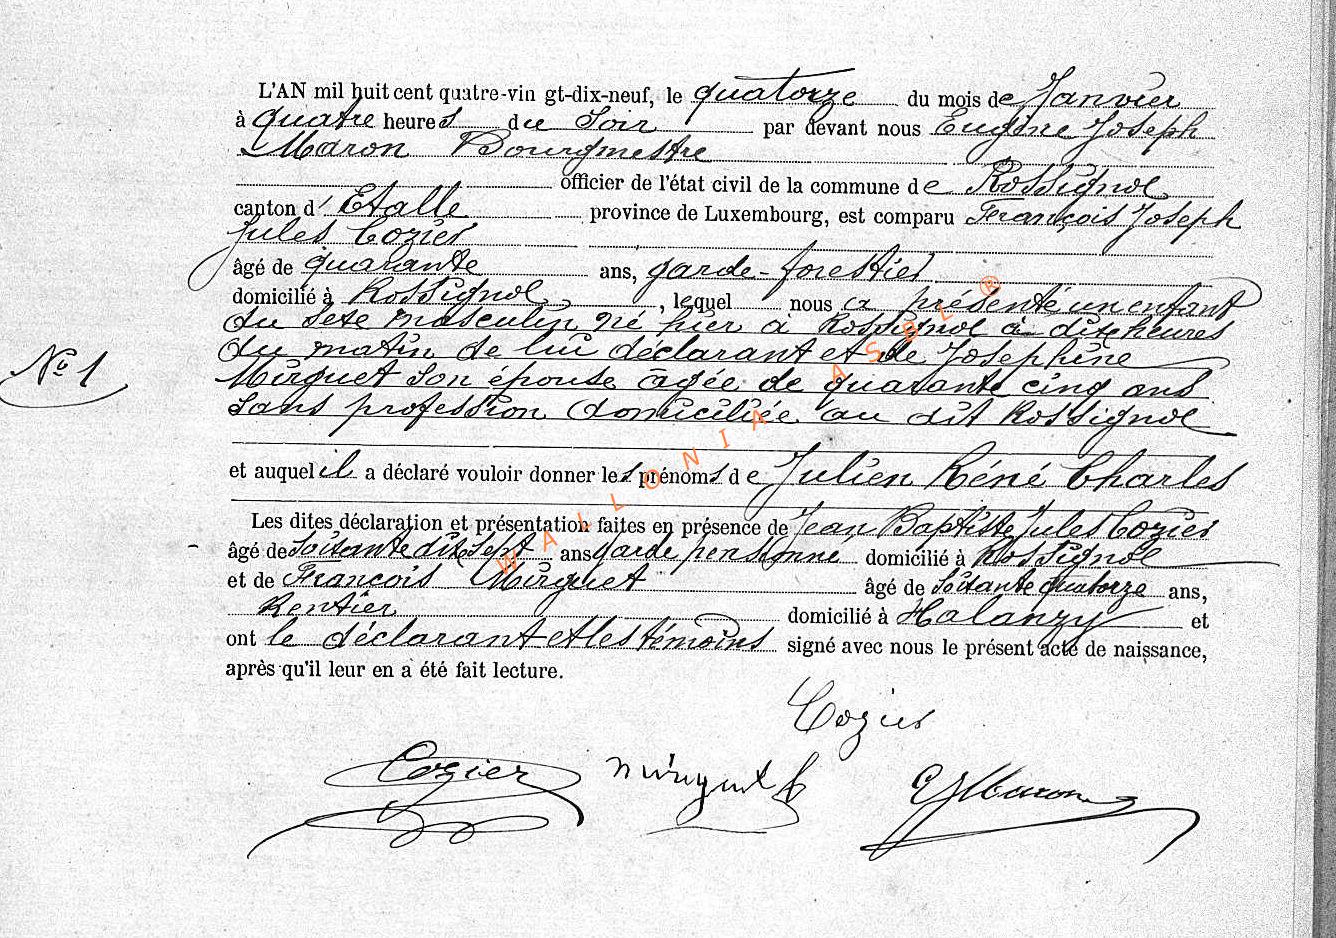 L'AN mil huit cent quatre-vin gt-dix-neuf, le quatorze du mois de Janvier
à quatre heures du Soir par devant nous Eugène Joseph
Maron Bourgmestre
officier de l'état civil de la commune de Rossignol
canton d' Etalle province de Luxembourg, est comparu François Joseph
Jules Cozier
âgé de quarante ans, garde-forestier
domicilié à Rossignol, lequel nous a présenté un enfant
du sexe masculin, né hier à Rossignol à dix heures
du matin de lui déclarant et de Josephine
N° 1
Mirguet son épouse agée de quarante cinq ans
sans profession domiciliée au dit Rossignol
et auquel il a déclaré vouloir donner les prénoms de Julien Réné Charles
Les dites déclaration et présentation faites en présence de Jean Baptiste Jules Cozier
âgé de Soixante dix sept ans garde pensionné domicilié à Rossignol
et de François Mirguet âgé de Soixante quatorze ans,
Rentier domicilié à Halanzy et
ont le déclarant et les témoins signé avec nous le présent acte de naissance,
après qu'il leur en a été fait lecture.
Cozier
Cozier Mirguet f EJMaron
WALLONIA ASBL ®